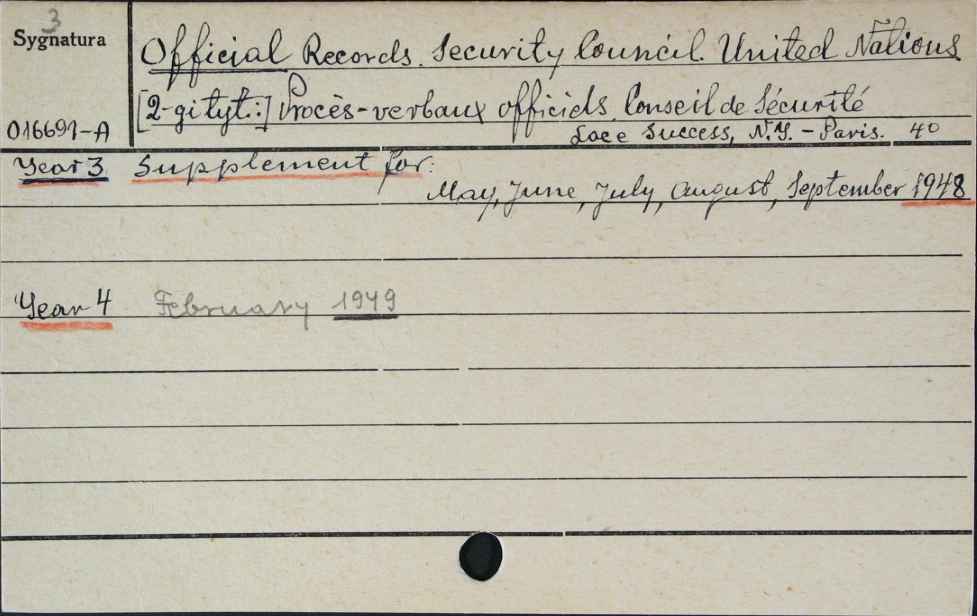 3
Sygnatura
Official Records. Security Council. United Nations
[2-gi tyt.:] Procès-verbaux officiels. Conseil de Sécurité
016691-A
Lace Success, N.Y. - Paris. 4°
Year 3 Supplement for:
May, June, July, August, September 1948
Year 4 February 1949